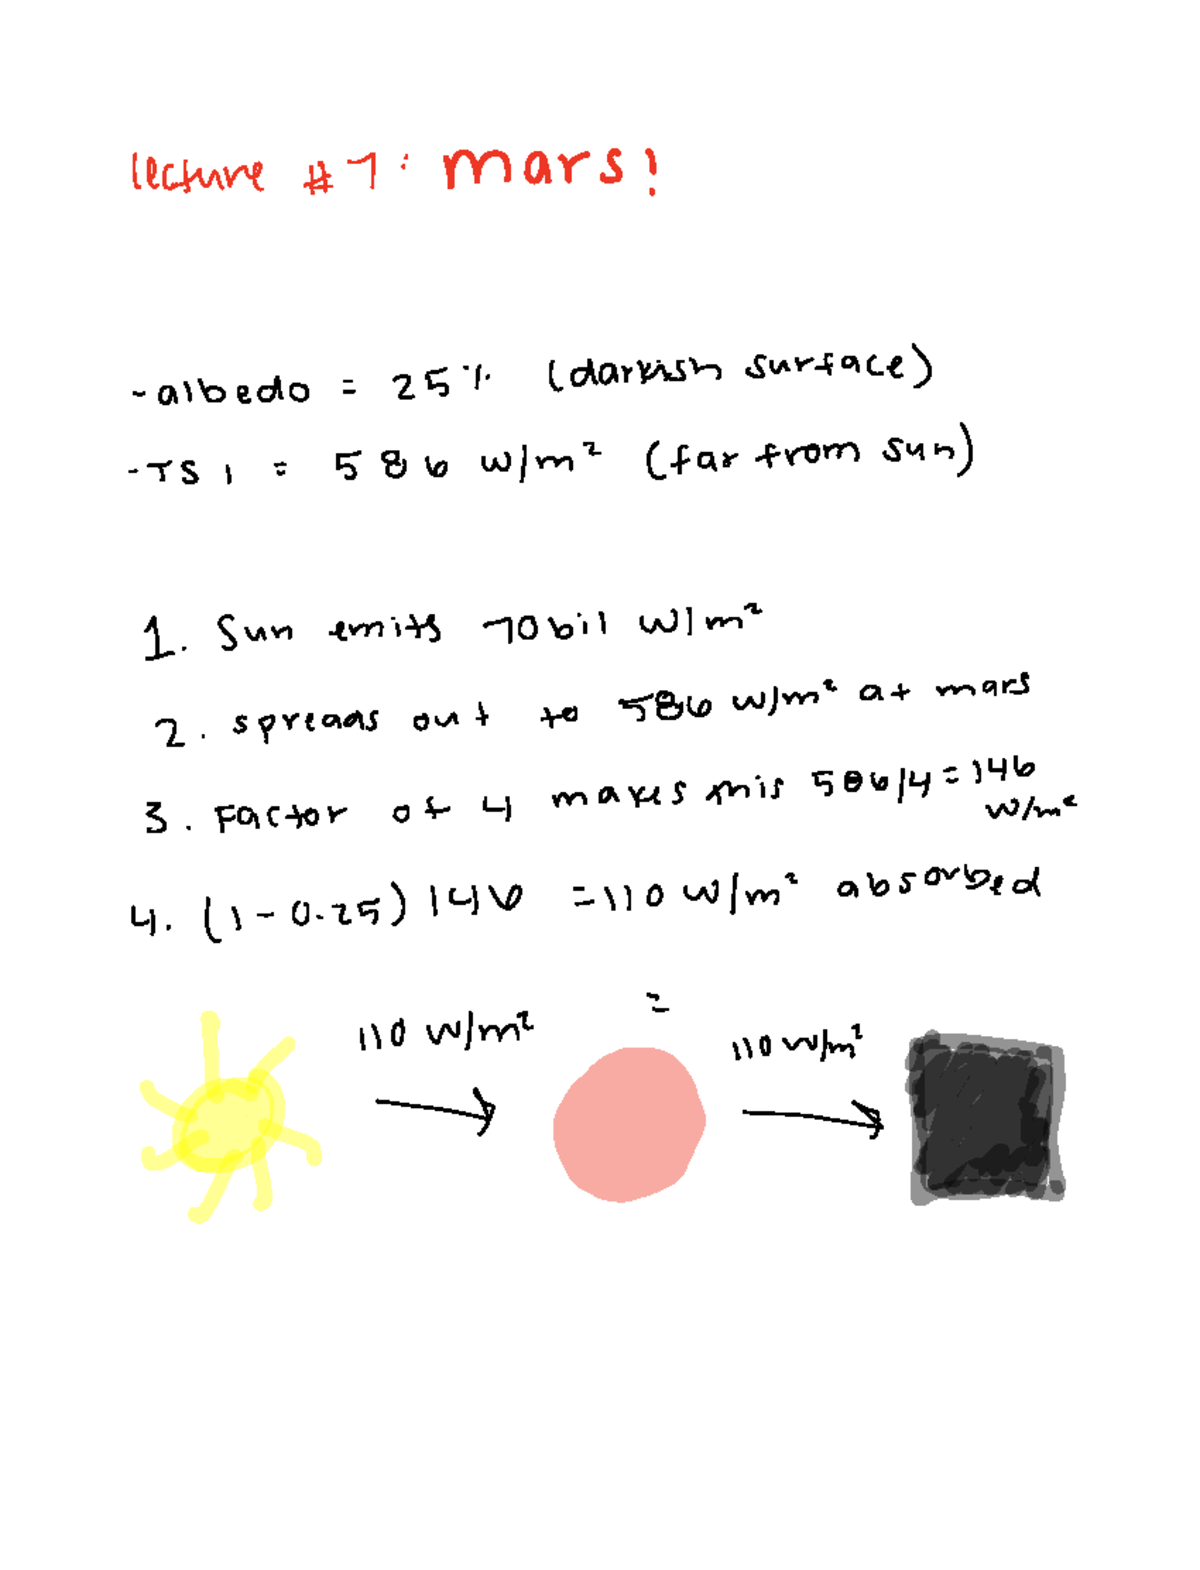 lecture #7: mars!
-albedo = 25% (darkish surface)
-TSI = 586 W/m² (far from sun)
1. Sun emits 70bil W/m²
2. spreads out to 586 W/m² at mars
3. Factor of 4 makes this 586/4=146 W/m²
4. (1-0.25)146 =110 W/m² absorbed
110 W/m² = 110 W/m²